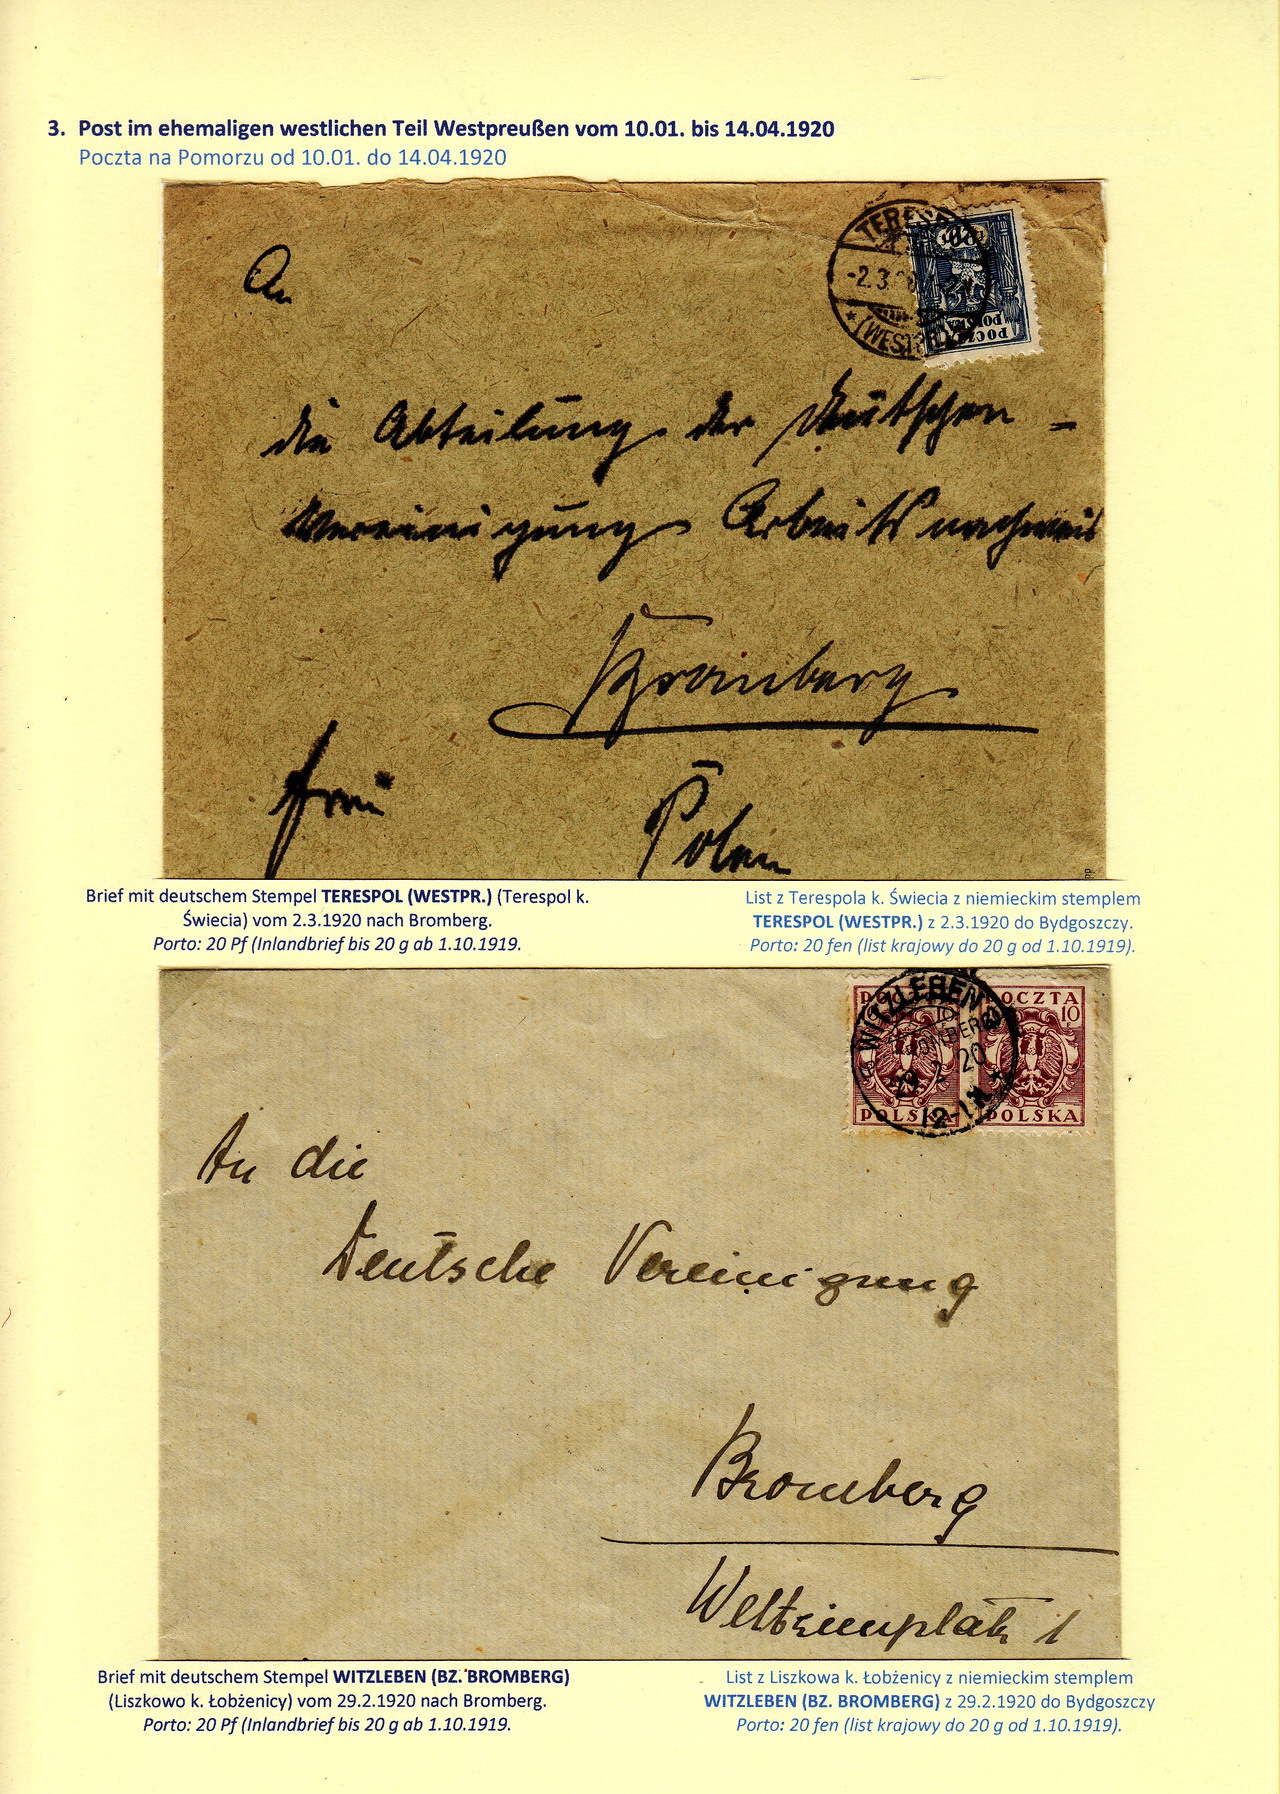 3. Post im ehemaligen westlichen Teil Westpreußen vom 10.01. bis 14.04.1920
Poczta na Pomorzu od 10.01. do 14.04.1920
TERESP
-2.3.
(WESTPR
POCZTA
POLSKA
An
die Abteilung der Deutschen -
Vereinigung Arbeitsnachweis
Bromberg
frei
Polen
Brief mit deutschem Stempel TERESPOL (WESTPR.) (Terespol k.
Świecia) vom 2.3.1920 nach Bromberg.
Porto: 20 Pf (Inlandbrief bis 20 g ab 1.10.1919.
List z Terespola k. Świecia z niemieckim stemplem
TERESPOL (WESTPR.) z 2.3.1920 do Bydgoszczy.
Porto: 20 fen (list krajowy do 20 g od 1.10.1919).
WITZLEBEN
BROMBERG
29 2 20
12-1N
POCZTA
10
F
POLSKA
POCZTA
10
F
POLSKA
An die
Deutsche Vereinigung
Bromberg
Weltzienplatz 1
Brief mit deutschem Stempel WITZLEBEN (BZ. BROMBERG)
(Liszkowo k. Łobżenicy) vom 29.2.1920 nach Bromberg.
Porto: 20 Pf (Inlandbrief bis 20 g ab 1.10.1919.
List z Liszkowa k. Łobżenicy z niemieckim stemplem
WITZLEBEN (BZ. BROMBERG) z 29.2.1920 do Bydgoszczy
Porto: 20 fen (list krajowy do 20 g od 1.10.1919).